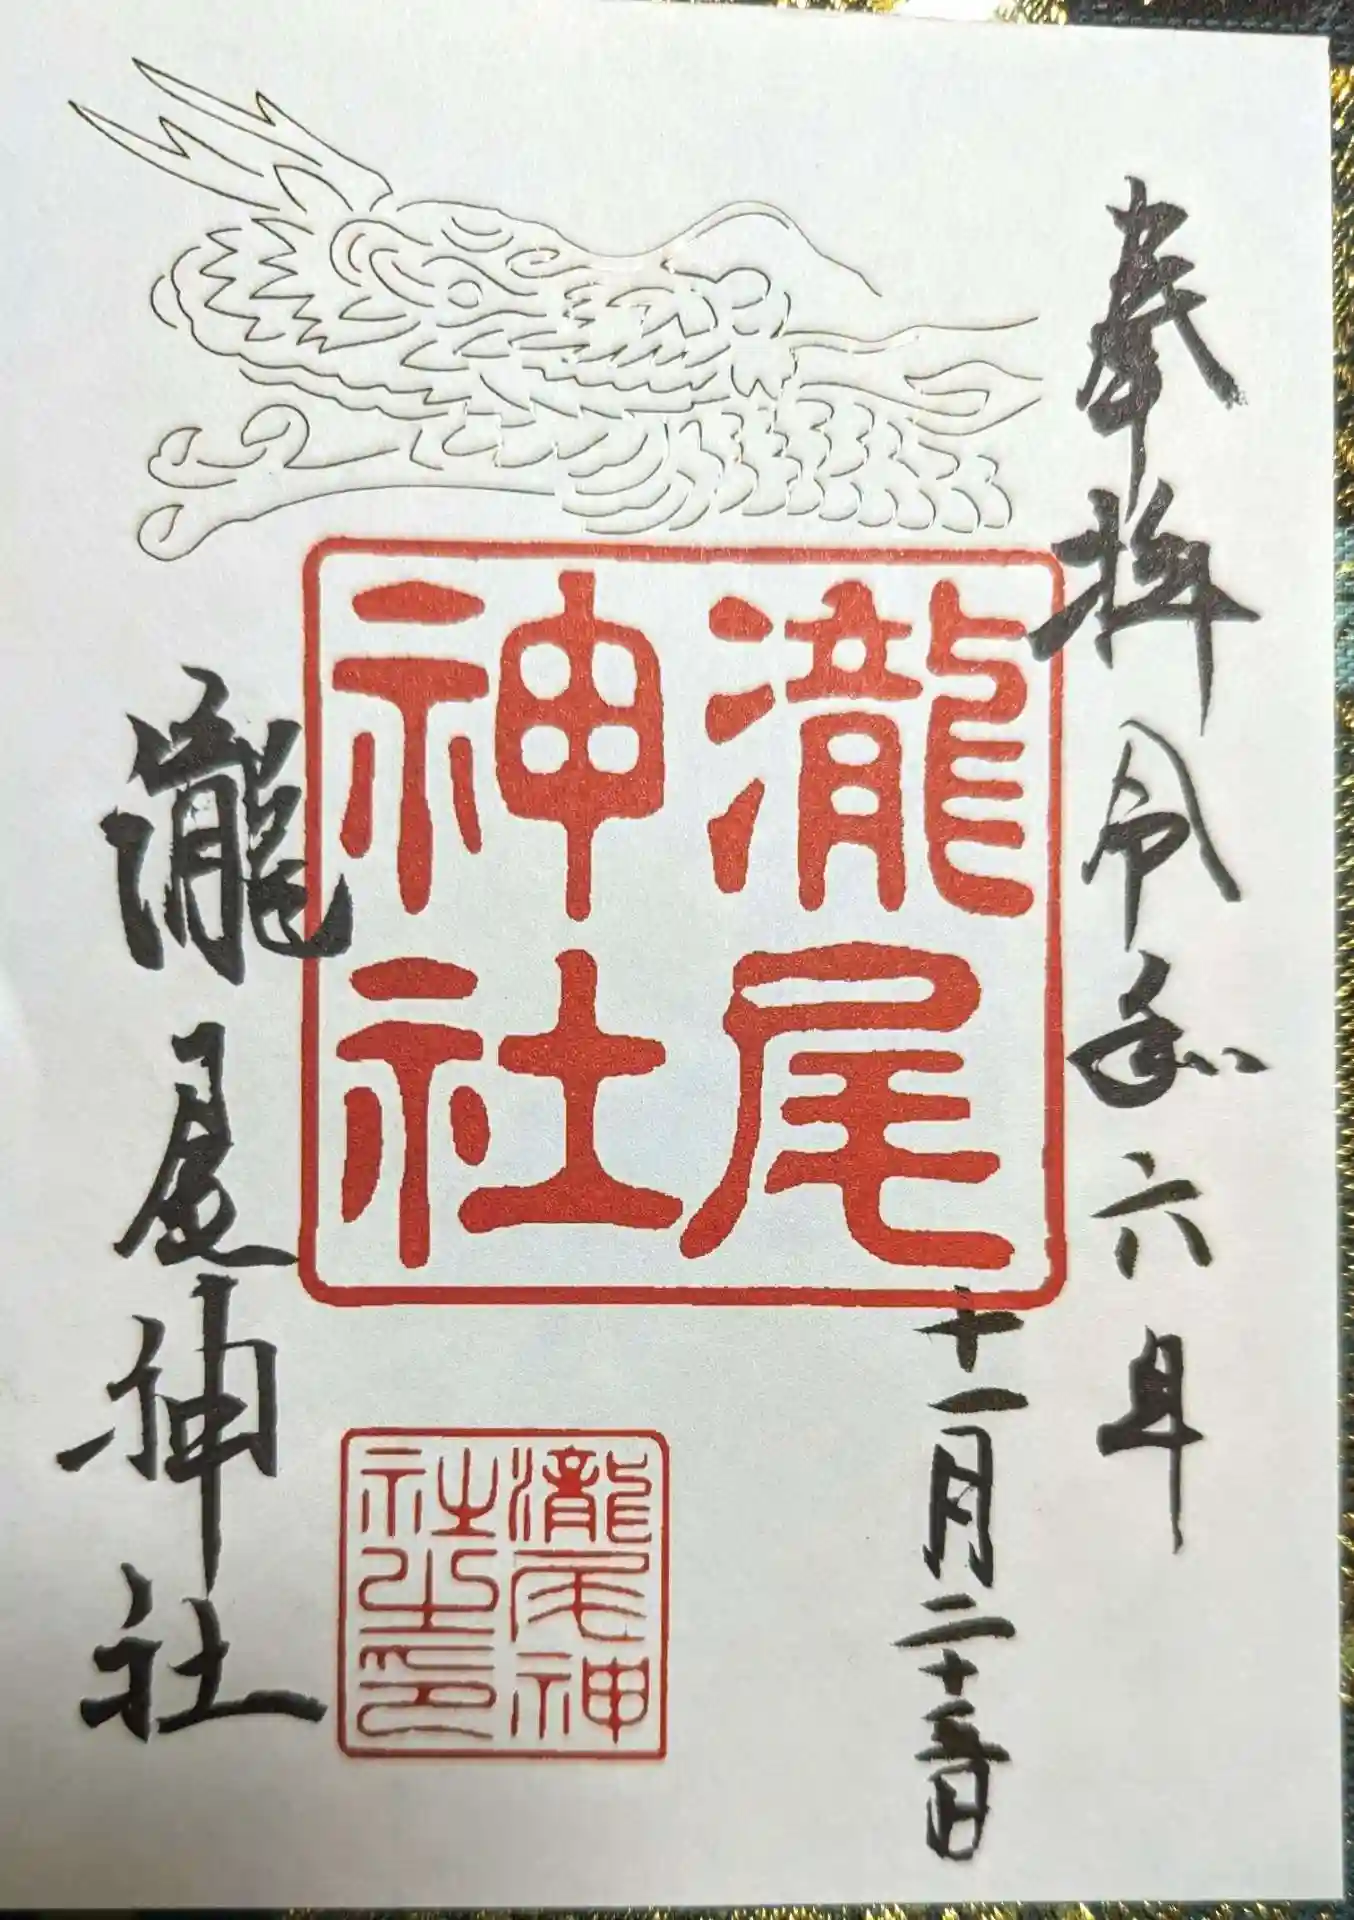 奉拝 令和六年
十一月二十三日
瀧尾
神社
瀧尾神
社之印
瀧尾神社